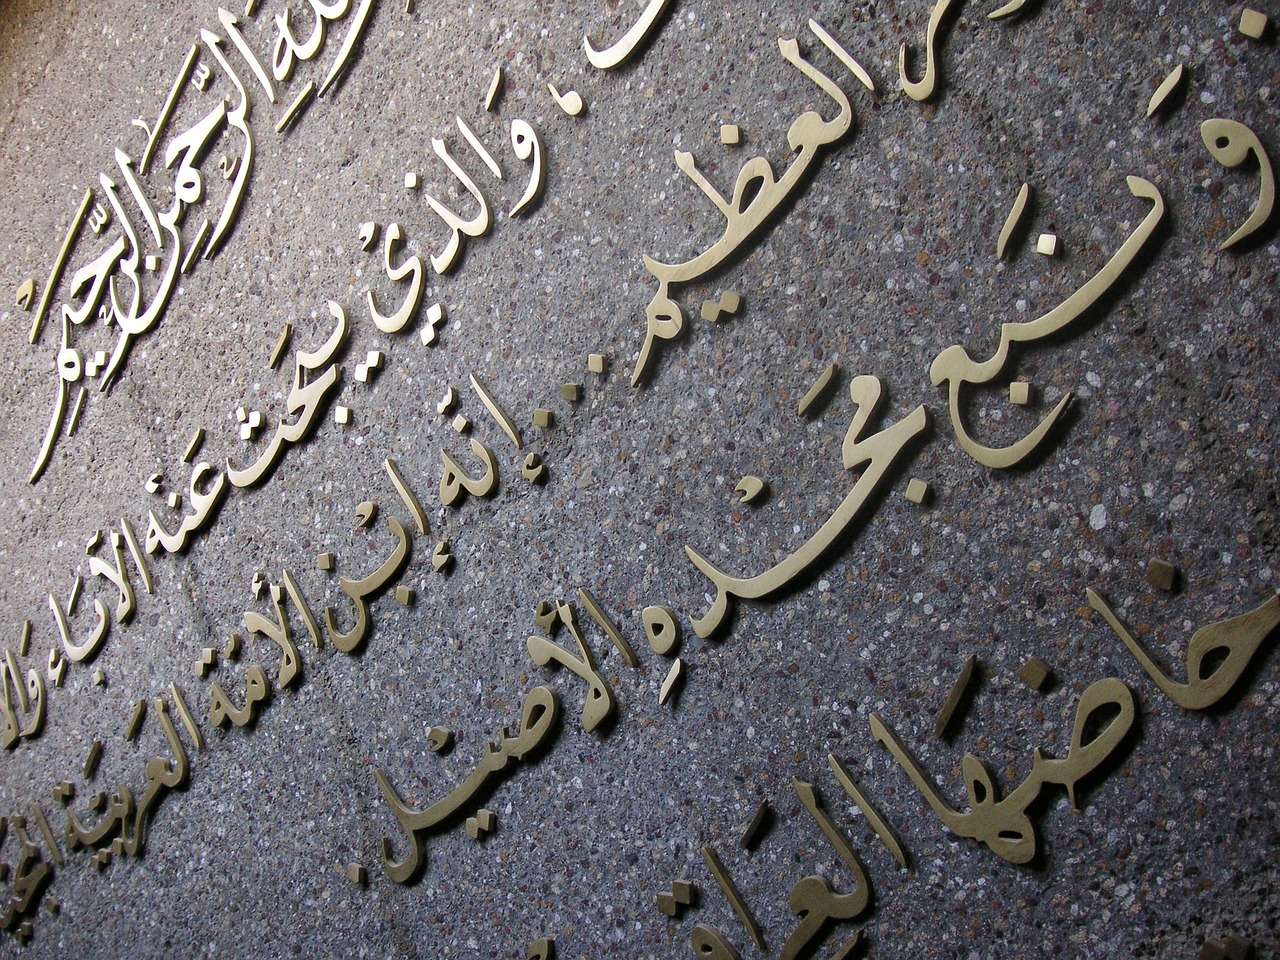 الله الرَّحمنِ الرَّحيمِ
، وَالذيْ يبحث عَنْه الآبَاء
العظيم ... إنّه ابْن الأمَة العَربيَة
وَ نَبع مَجْدهِ الأصيْل .
خاضَها